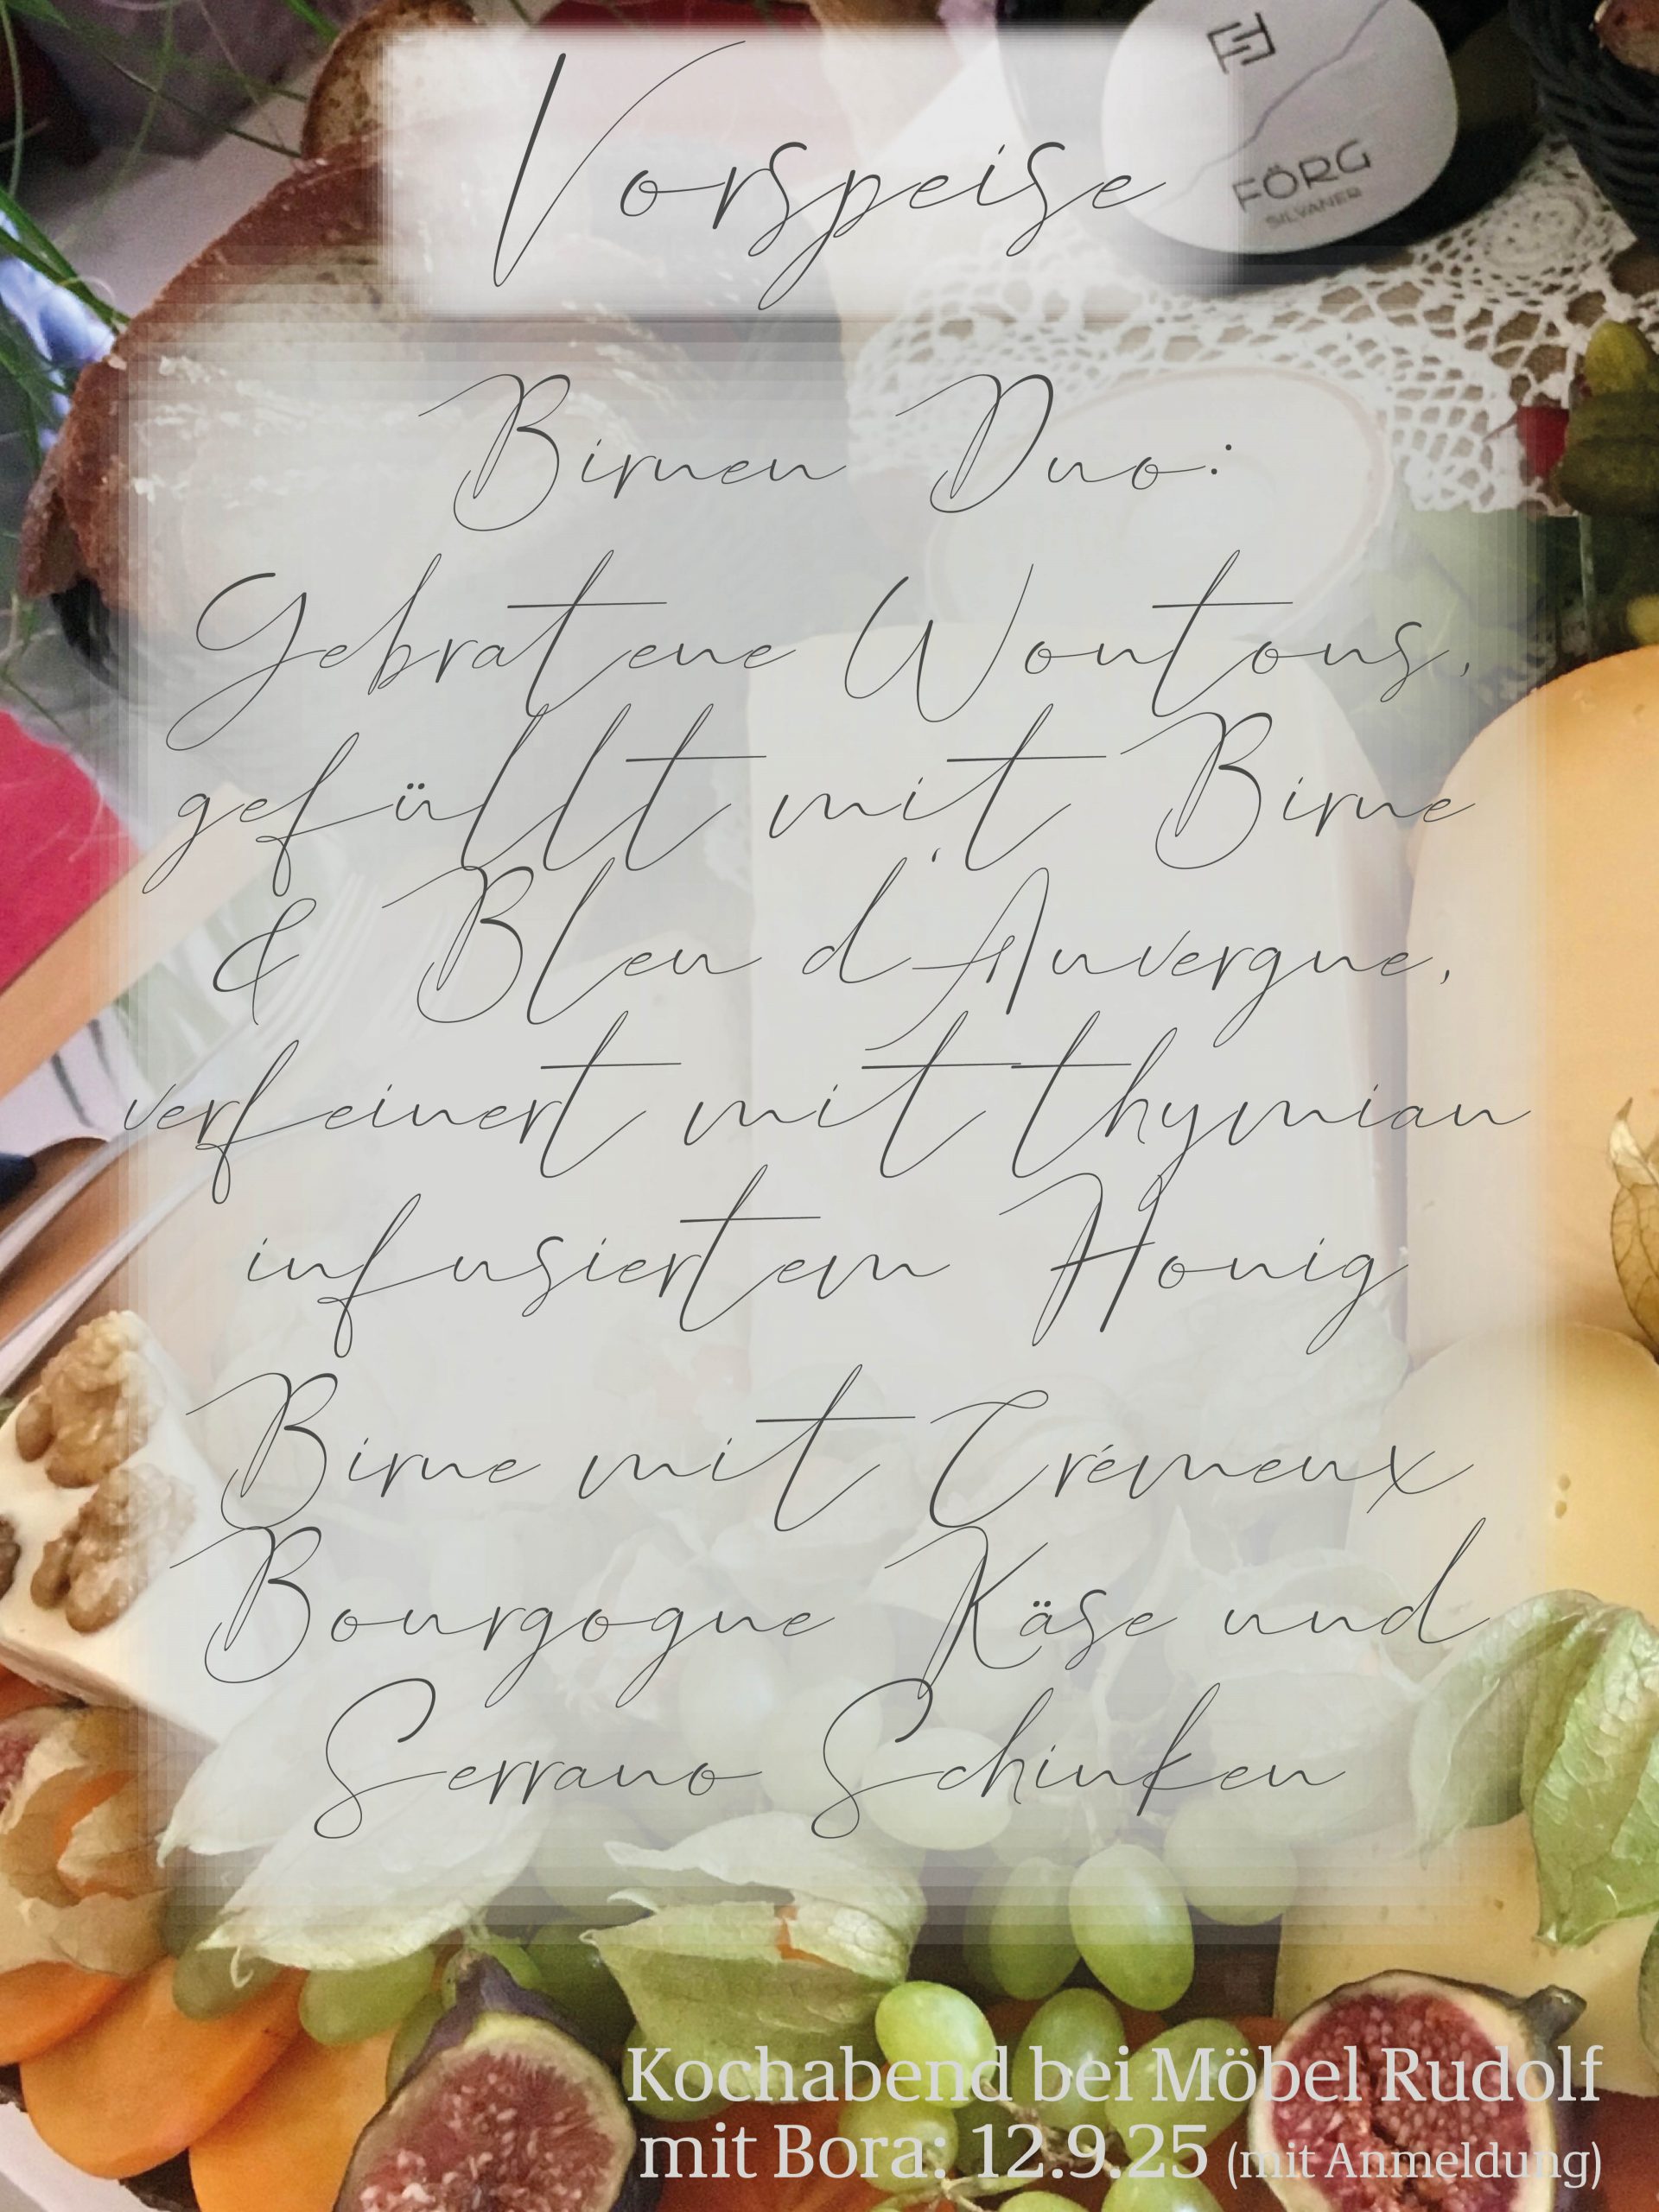 FÖRG
SILVANER
Vorspeise
Birnen Duo:
Gebratene Wontons,
gefüllt mit Birne
& Bleu d'Auvergne,
verfeinert mit thymian
infusiertem Honig
Birne mit Crémeux
Bourgogne Käse und
Serrano Schinken
Kochabend bei Möbel Rudolf
mit Bora: 12.9.25 (mit Anmeldung)